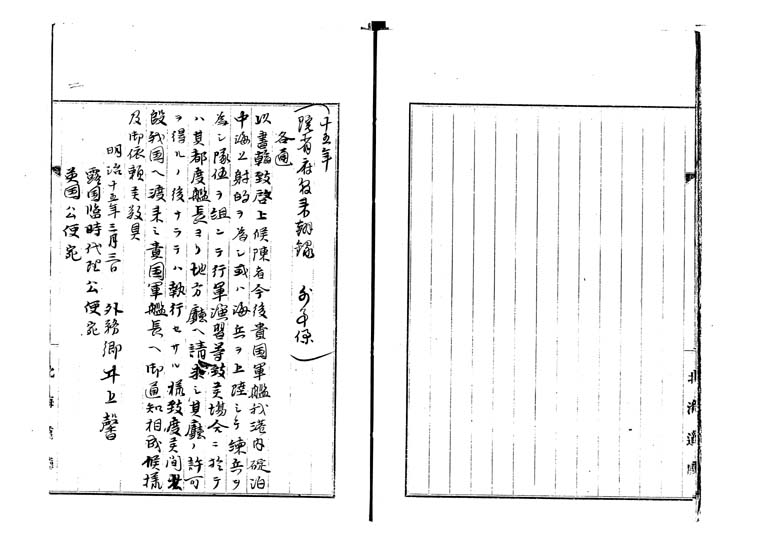 (十五年
院省府县来翰録 外事係)
各通
以書翰致啓上候陳者今後貴国軍艦我港内碇泊
中海上射的ヲ為シ或ハ海兵ヲ上陸シテ練兵ヲ
為シ隊伍ヲ組ンテ行軍演習等致候場合ニ於テ
ハ其都度艦長ヨリ地方廳ヘ請求シ其廳ノ許可
ヲ得ルノ後ナラテハ執行セサル様致度候間
殷我国ヘ渡来之貴国軍艦長ヘ御通知相成候様
及御依頼候敬具
明治十五年三月三日 外務卿井上馨
露国臨時代理公使宛
英国公使宛
北海道廳